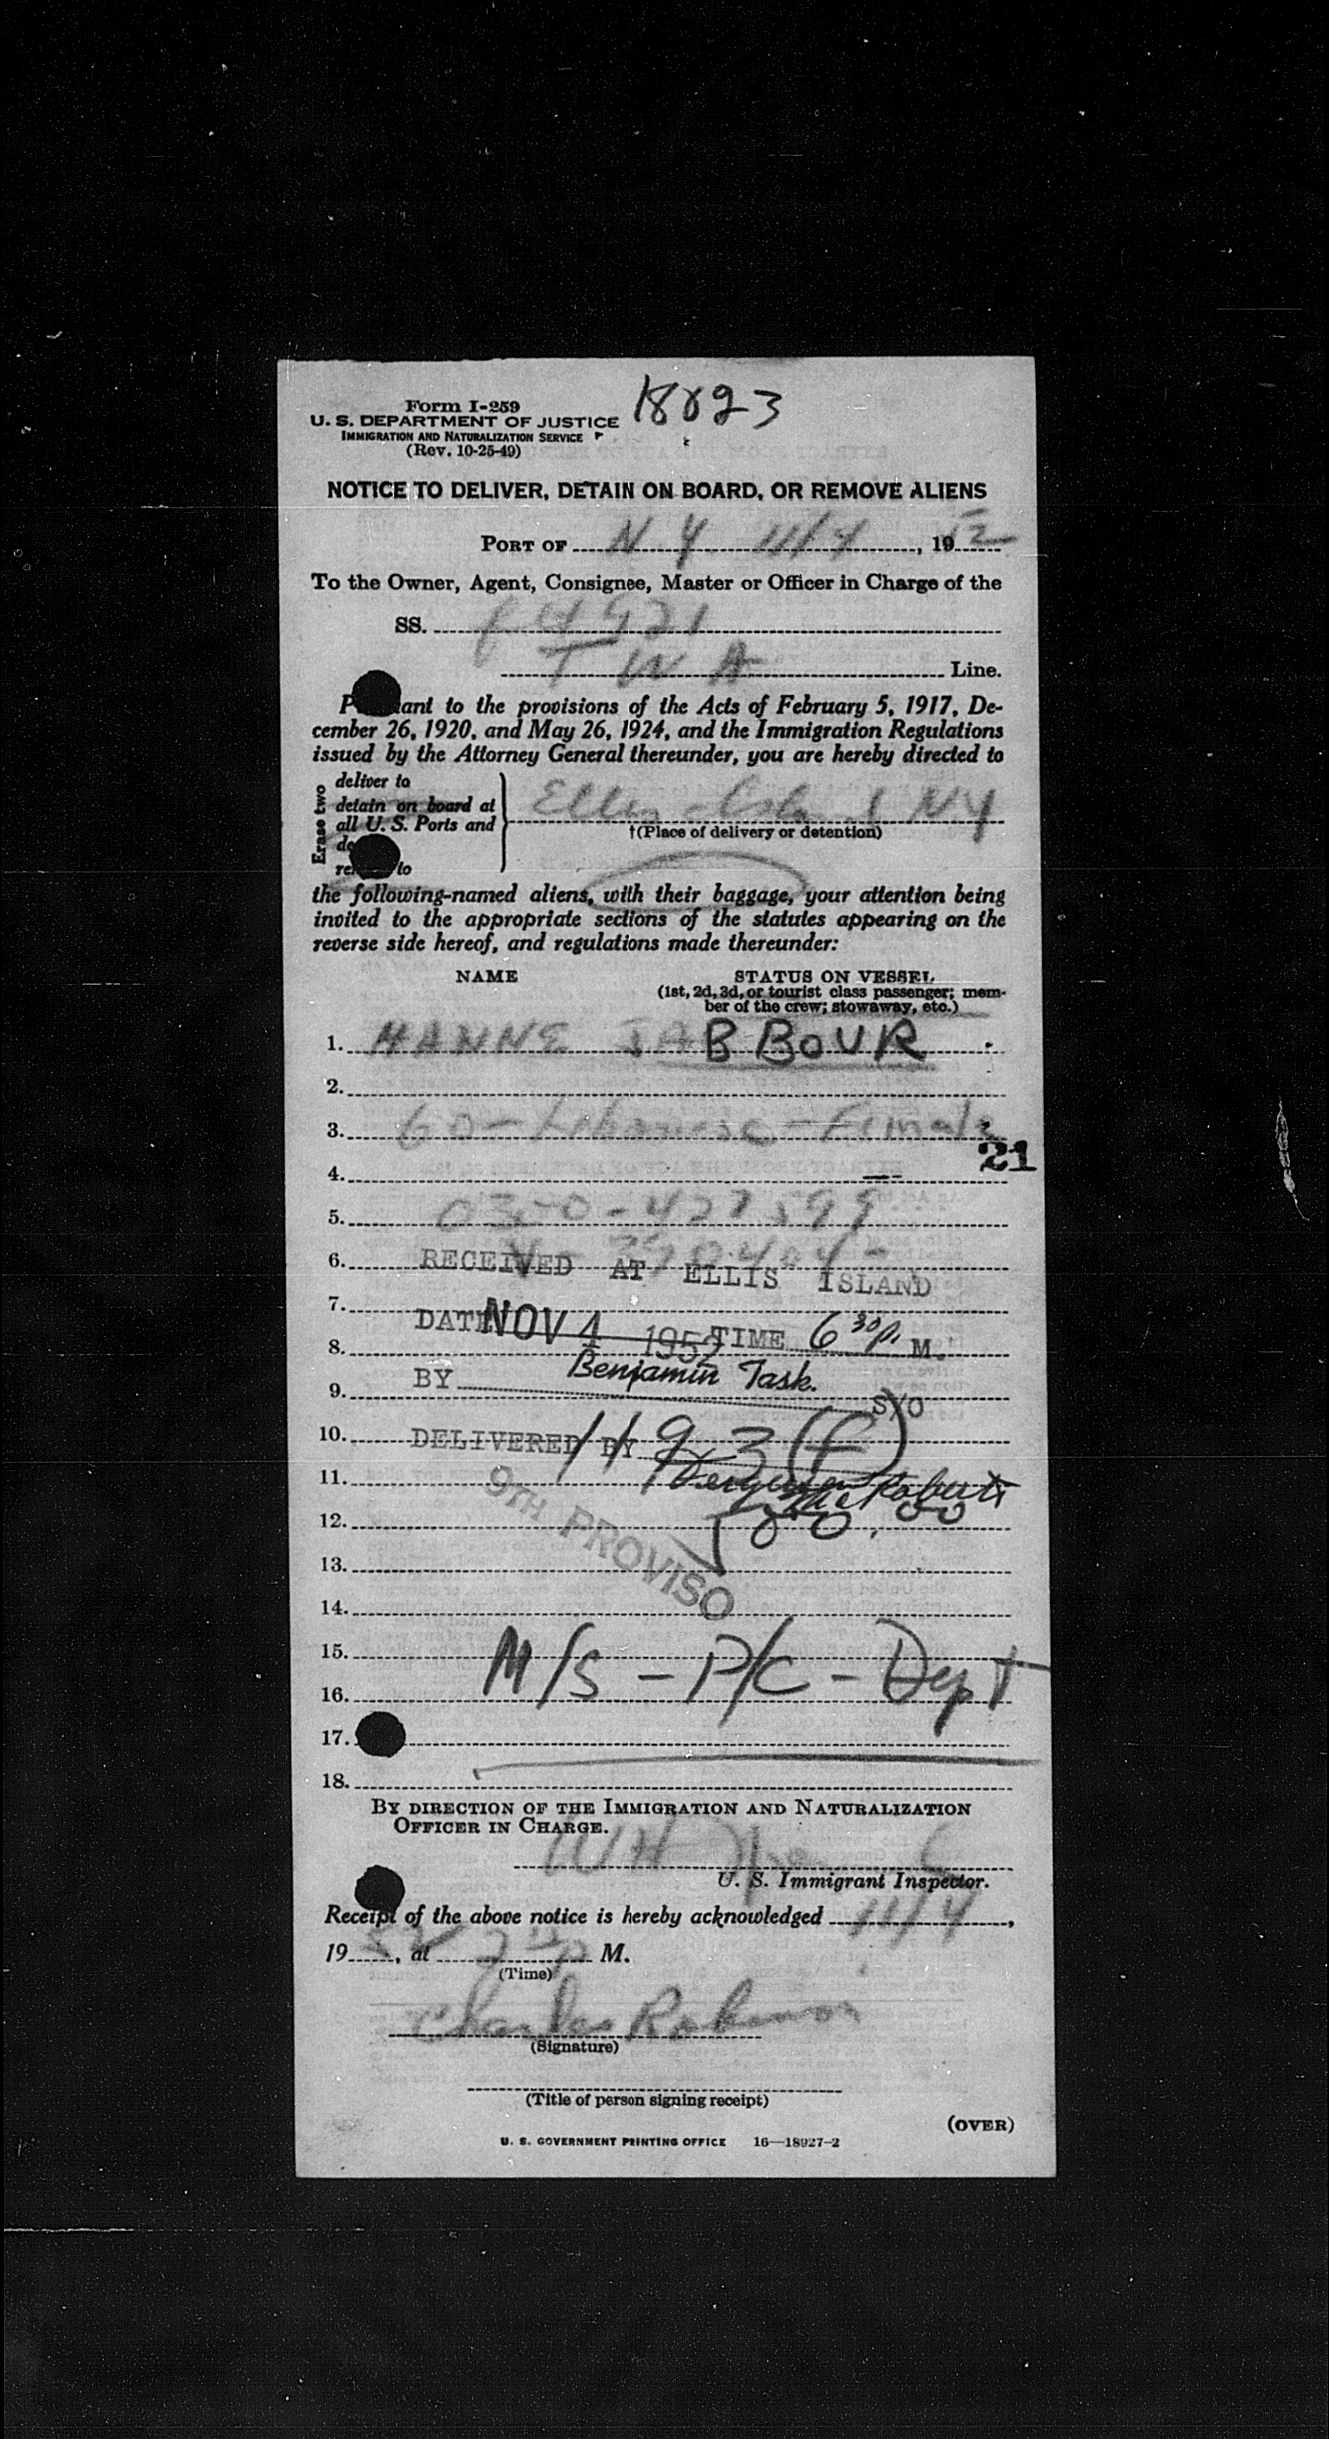 18823
Form I-259
U. S. DEPARTMENT OF JUSTICE
IMMIGRATION AND NATURALIZATION SERVICE
(Rev. 10-25-49)
NOTICE TO DELIVER, DETAIN ON BOARD, OR REMOVE ALIENS
PORT OF N Y 11/4, 1952
To the Owner, Agent, Consignee, Master or Officer in Charge of the
SS. f 4921
T W A Line.
P ant to the provisions of the Acts of February 5, 1917, De-
cember 26, 1920, and May 26, 1924, and the Immigration Regulations
issued by the Attorney General thereunder, you are hereby directed to
Erase two
deliver to
detain on board at
all U. S. Ports and
de
re to
Ellis Island NY
†(Place of delivery or detention)
the following-named aliens, with their baggage, your attention being
invited to the appropriate sections of the statutes appearing on the
reverse side hereof, and regulations made thereunder:
NAME STATUS ON VESSEL
(1st, 2d, 3d, or tourist class passenger; mem-
ber of the crew; stowaway, etc.)
1. HANNE JABBOUR
2.
3. 60 - Lebanese - Female
21
4.
5. 0350-427599
6. V-
RECEIVED AT ELLIS ISLAND
7.
DATE NOV 4 1952 TIME 6 30 p. M.
8.
BY Benjamin Task.
9.
S/O
10. DELIVERED BY
11 9 3 (f)
11.
9TH PROVISO
McRoberts
12.
13.
14.
15.
M/S - P/C - Dept
16.
17.
18.
BY DIRECTION OF THE IMMIGRATION AND NATURALIZATION
OFFICER IN CHARGE.
WH
U. S. Immigrant Inspector.
Receipt of the above notice is hereby acknowledged 11/4,
19 52, at M.
(Time)
Charles Robinson
(Signature)
(Title of person signing receipt)
(OVER)
U. S. GOVERNMENT PRINTING OFFICE 16—18927-2